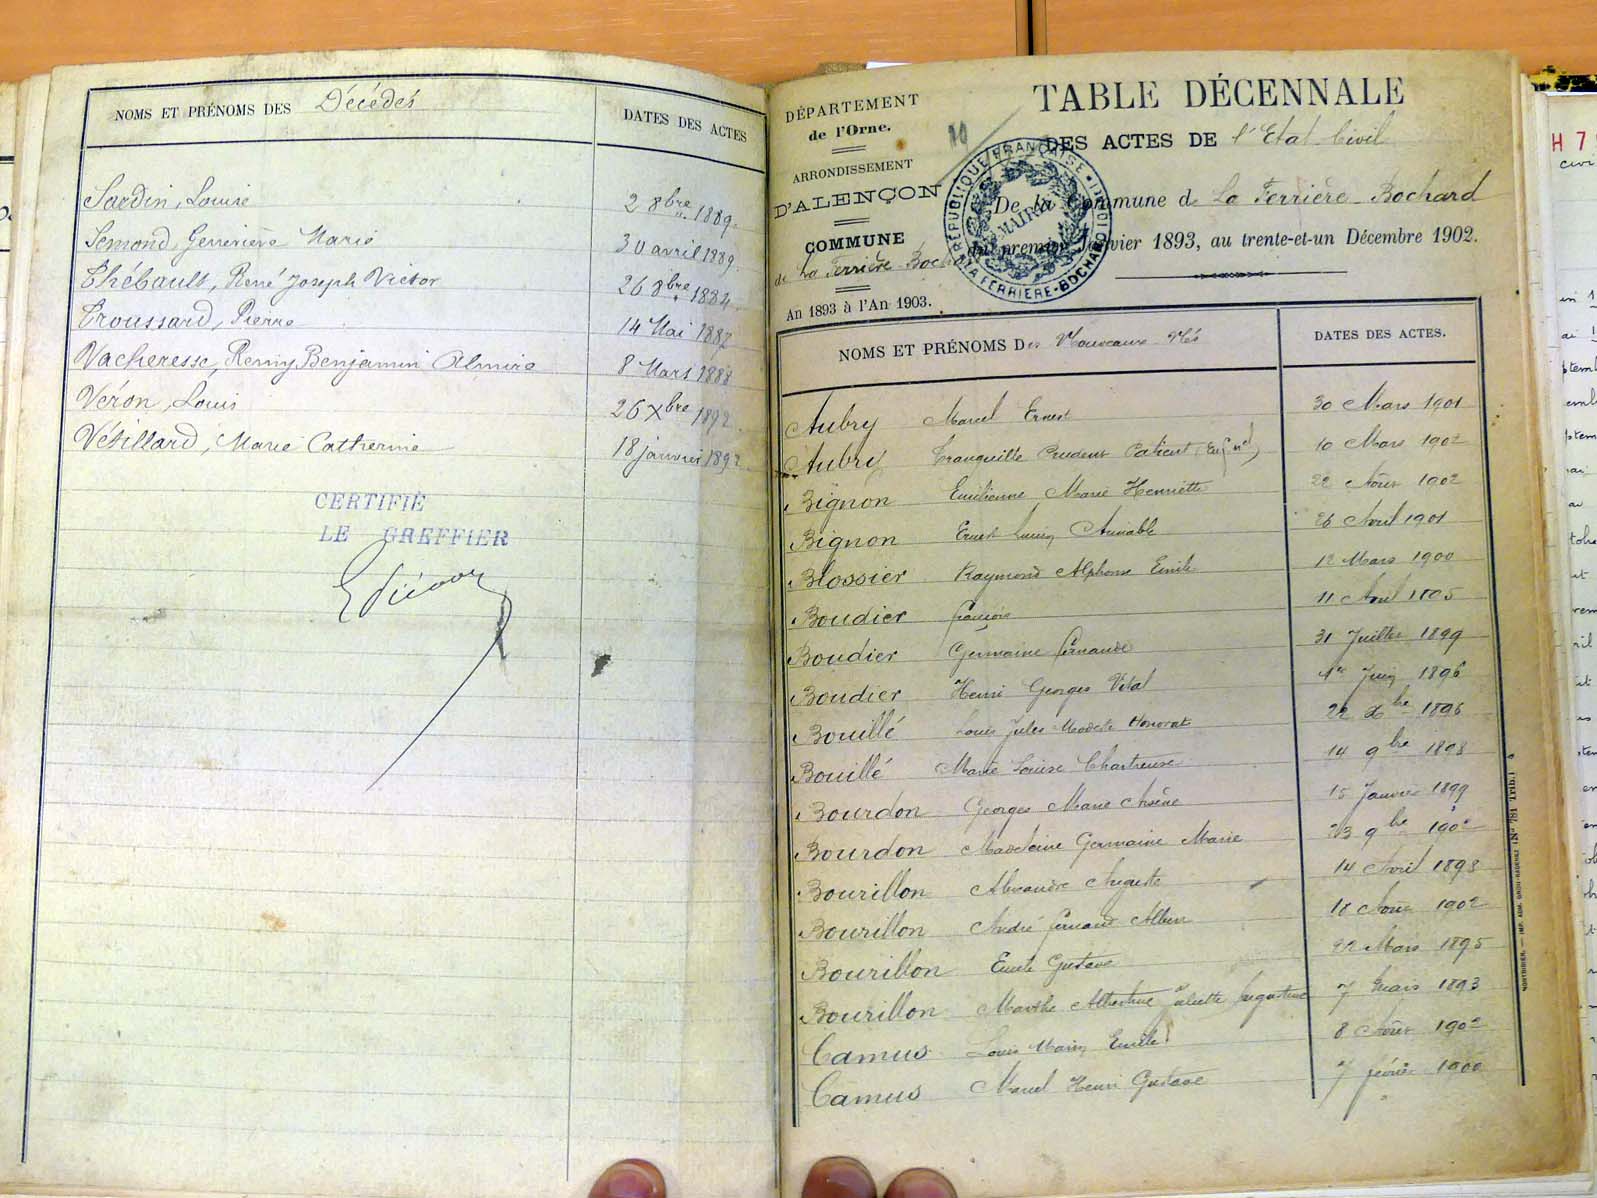 NOMS ET PRÉNOMS DES Décédés
DATES DES ACTES
Sardin, Louise 2 8bre 1889
Semond, Geneviève Marie 30 avril 1889
Thébault, René Joseph Victor 26 8bre 1884
Troussard, Pierre 14 Mai 1887
Vacheresse, Remy Benjamin Almire 8 Mars 1888
Véron, Louis 26 Xbre 1892
Vétillard, Marie Catherine 18 janvier 1892
CERTIFIÉ
LE GREFFIER
DÉPARTEMENT
de l'Orne.
ARRONDISSEMENT
D'ALENÇON
COMMUNE
de La Ferrière Bochard
An 1893 à l'An 1903.
10
TABLE DÉCENNALE
DES ACTES DE l'Etat Civil
De la Commune de La Ferrière Bochard
du premier Janvier 1893, au trente-et-un Décembre 1902.
RÉPUBLIQUE FRANÇAISE
MAIRIE
LA FERRIERE-BOCHARD (ORNE)
NOMS ET PRÉNOMS Des Nouveaux-Nés
DATES DES ACTES.
Aubry Marcel Ernest 30 Mars 1901
Aubry Tranquille Prudent Patient 10 Mars 1902
Bignon Emilienne Marie Henriette 22 Août 1902
Bignon Ernest Lucien Aimable 26 Avril 1901
Blossier Raymond Alphonse Emile 12 Mars 1900
Boudier François 11 Avril 1895
Boudier Germaine Fernande 31 Juillet 1899
Boudier Henri Georges Vital 1er Juin 1896
Bouillé Louis Jules Modeste Honorat 22 Xbre 1896
Bouillé Marie Louise Chartreuse 14 9bre 1898
Bourdon Georges Marie Arsène 15 Janvier 1899
Bourdon Madeleine Germaine Marie 23 9bre 1902
Bourillon Alexandre Auguste 14 Avril 1893
Bourillon André Fernand Albert 18 Août 1902
Bourillon Emile Gustave 22 Mars 1895
Bourillon Marthe Albertine Juliette Augustine 7 Mars 1893
Camus Louis Marie Emile 8 Août 1902
Camus Marcel Henri Gustave 7 février 1900
H 7